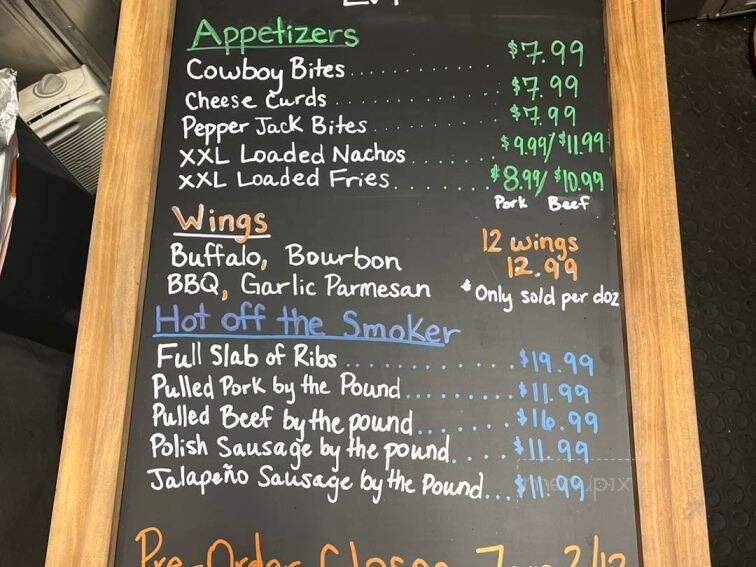 Appetizers
Cowboy Bites............ $7.99
Cheese Curds............ $7.99
Pepper Jack Bites............ $7.99
XXL Loaded Nachos....... $9.99/$11.99
XXL Loaded Fries....... $8.99/$10.99
Pork Beef
Wings
Buffalo, Bourbon 12 wings
12.99
BBQ, Garlic Parmesan *Only sold per doz
Hot off the Smoker
Full Slab of Ribs............ $19.99
Pulled Pork by the Pound......... $11.99
Pulled Beef by the pound........ $16.99
Polish Sausage by the pound.... $11.99
Jalapeño Sausage by the Pound... $11.99
menupix
Pre-Order